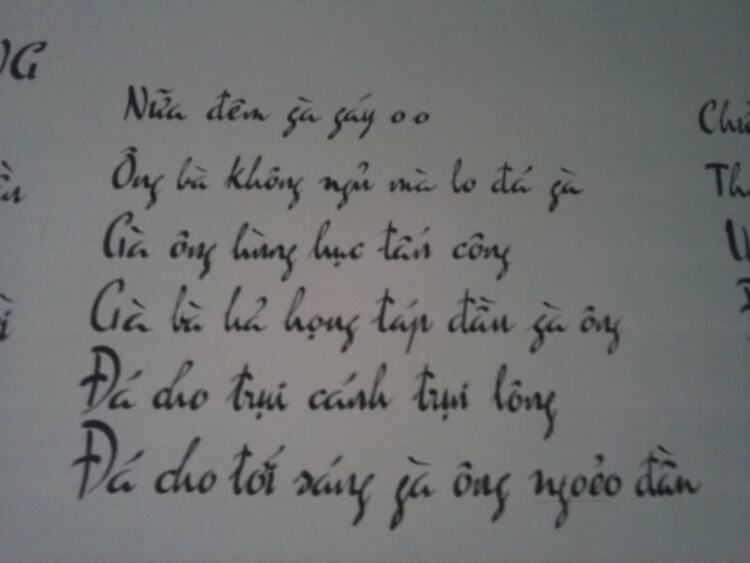 Nữa đêm gà gáy o o
Ông bà không ngủ mà lo đá gà
Gà ông hùng hục tấn công
Gà bà hả họng táp đầu gà ông
Đá cho trụi cánh trụi lông
Đá cho tới sáng gà ông ngoẻo đầu